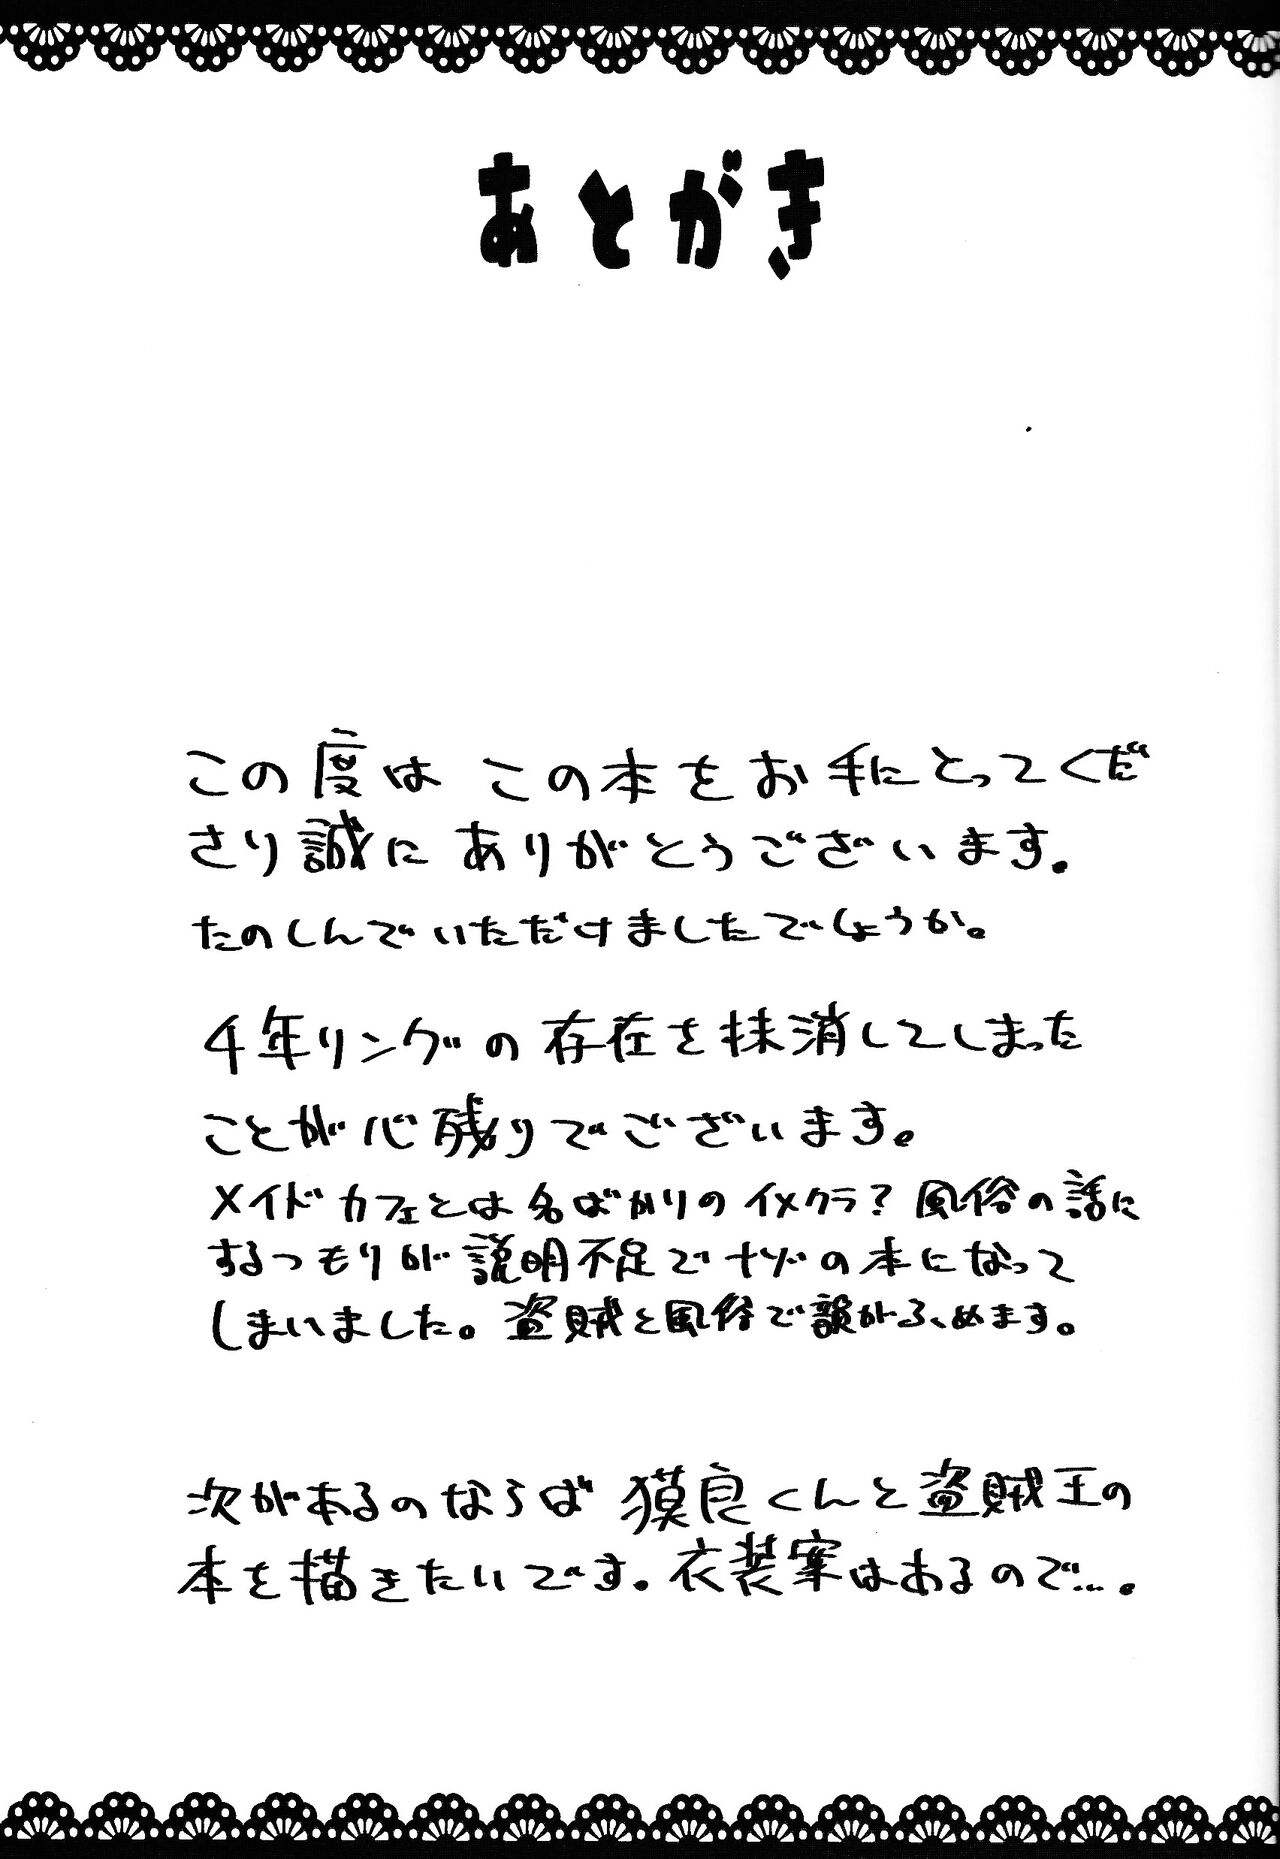 あとがき
この度は この本をお手にとってくだ
さり誠に ありがとうございます。
たのしんでいただけましたでしょうか。
千年リングの存在を抹消してしまった
ことが心残りでございます。
メイドカフェとは名ばかりのイメクラ?風俗の話に
するつもりが説明不足でナゾの本になって
しまいました。盗賊と風俗で韻がふめます。
次があるのならば 獏良くんと盗賊王の
本を描きたいです。衣装案はあるので…。